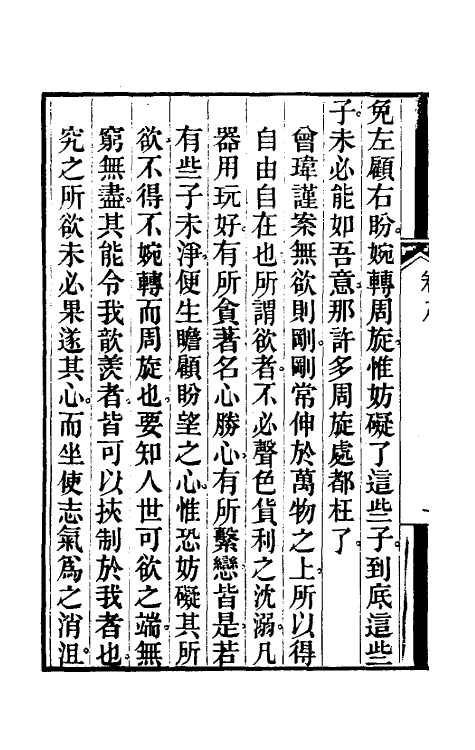 免左顧右盼婉轉周旋惟妨礙了這些子到底這些
子未必能如吾意那許多周旋處都枉了
曾瑋謹案無欲則剛剛常伸於萬物之上所以得
自由自在也所謂欲者不必聲色貨利之沈溺凡
器用玩好有所貪著名心勝心有所繫戀皆是若
有些子未淨便生瞻顧盼望之心惟恐妨礙其所
欲不得不婉轉而周旋也要知人世可欲之端無
窮無盡其能令我歆羨者皆可以挾制於我者也
究之所欲未必果遂其心而坐使志氣爲之消沮